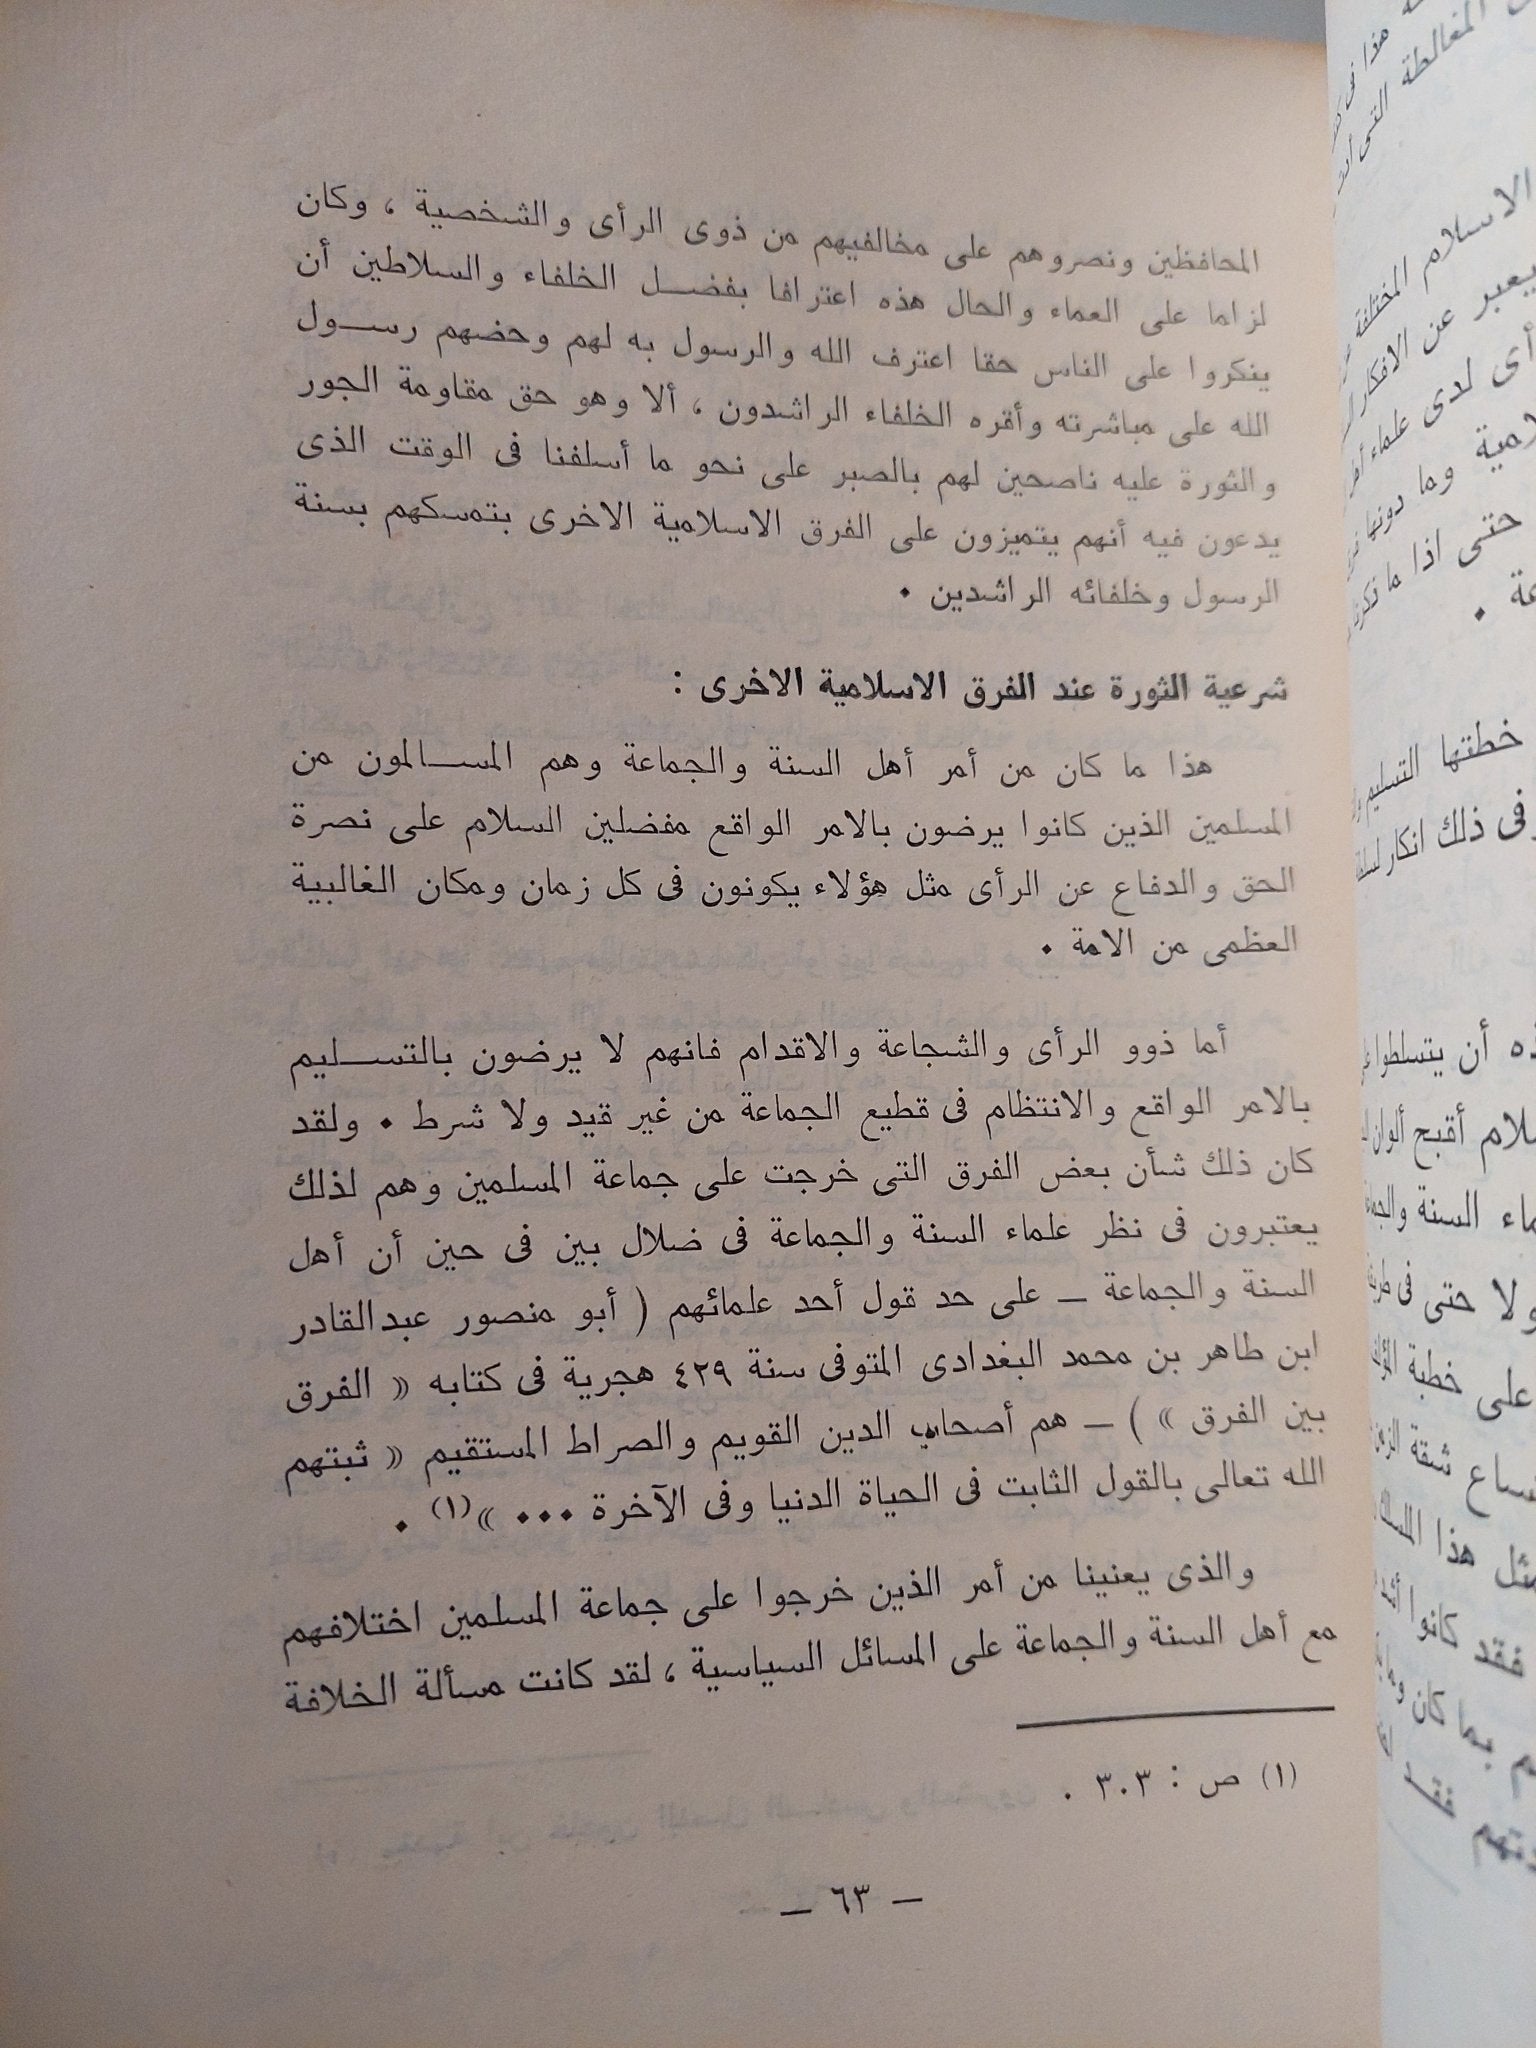 المحافظين ونصروهم على مخالفيهم من ذوى الرأى والشخصية ، وكان
لزاما على العماء والحال هذه اعترافا بفضل الخلفاء والسلاطين أن
ينكروا على الناس حقا اعترف الله والرسول به لهم وحضهم رسول
الله على مباشرته وأقره الخلفاء الراشدون ، ألا وهو حق مقاومة الجور
والثورة عليه ناصحين لهم بالصبر على نحو ما أسلفنا فى الوقت الذى
يدعون فيه أنهم يتميزون على الفرق الاسلامية الاخرى بتمسكهم بسنة
الرسول وخلفائه الراشدين .
شرعية الثورة عند الفرق الاسلامية الاخرى :
هذا ما كان من أمر أهل السنة والجماعة وهم المسالمون من
المسلمين الذين كانوا يرضون بالامر الواقع مفضلين السلام على نصرة
الحق والدفاع عن الرأى مثل هؤلاء يكونون فى كل زمان ومكان الغالبية
العظمى من الامة .
أما ذوو الرأى والشجاعة والاقدام فانهم لا يرضون بالتسليم
بالامر الواقع والانتظام فى قطيع الجماعة من غير قيد ولا شرط . ولقد
كان ذلك شأن بعض الفرق التى خرجت على جماعة المسلمين وهم لذلك
يعتبرون فى نظر علماء السنة والجماعة فى ضلال بين فى حين أن أهل
السنة والجماعة — على حد قول أحد علمائهم ( أبو منصور عبدالقادر
ابن طاهر بن محمد البغدادى المتوفى سنة ٤٢٩ هجرية فى كتابه « الفرق
بين الفرق » ) — هم أصحاب الدين القويم والصراط المستقيم « ثبتهم
الله تعالى بالقول الثابت فى الحياة الدنيا وفى الآخرة ... »(١) .
والذى يعنينا من أمر الذين خرجوا على جماعة المسلمين اختلافهم
مع أهل السنة والجماعة على المسائل السياسية ، لقد كانت مسألة الخلافة
(١) ص : ٣٠٣ .
— ٦٣ —
هذا فى
المغالطة التى
الاسلام المختلفة
يعبر عن الافكار
رأى لدى علماء
وما دونها
حتى اذا ما
خطتها التسليم
وفى ذلك انكار
أن يتسلطوا
أقبح ألوان
السنة
ولا حتى فى
على خطبة
شقة
مثل هذا
فقد كانوا
بما كان